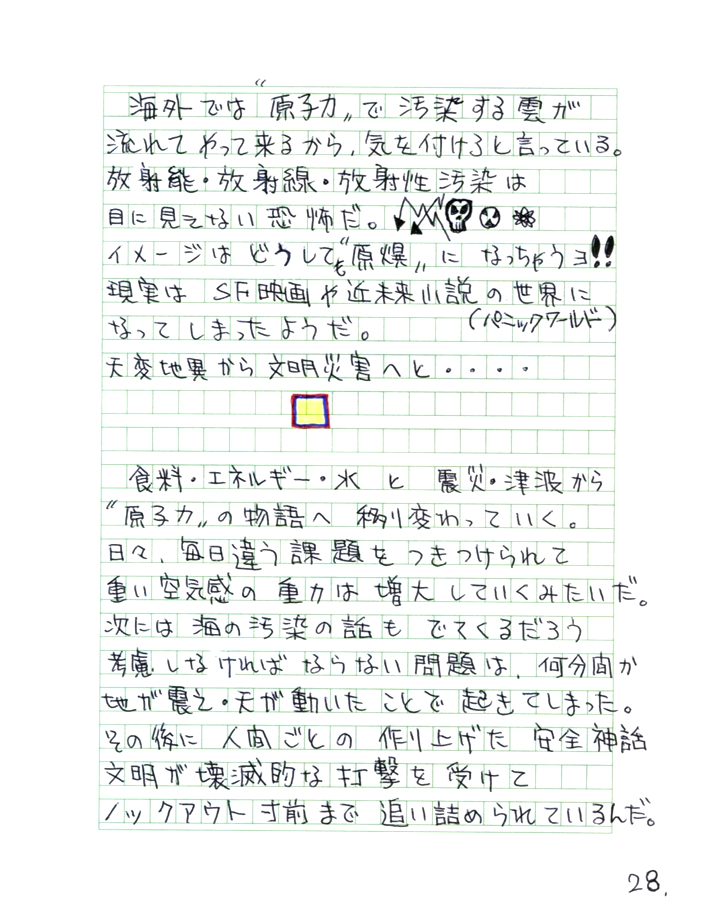 海外では“原子力〟で汚染する雲が
流れてやって来るから、気を付けろと言っている。
放射能・放射線・放射性汚染は
目に見えない恐怖だ。
イメージはどうしても“原爆〟になっちゃうヨ!!
現実はSF映画や近未来小説の世界に
(パニックワールド)
なってしまったようだ。
天変地異から文明災害へと・・・・
食料・エネルギー・水と震災・津波から
“原子力〟の物語へ移り変わっていく。
日々、毎日違う課題をつきつけられて
重い空気感の重力は増大していくみたいだ。
次には海の汚染の話もでてくるだろう
考慮しなければならない問題は、何分間か
地が震え・天が動いたことで起きてしまった。
その後に人間ごとの作り上げた安全神話
文明が壊滅的な打撃を受けて
ノックアウト寸前まで追い詰められているんだ。
28.